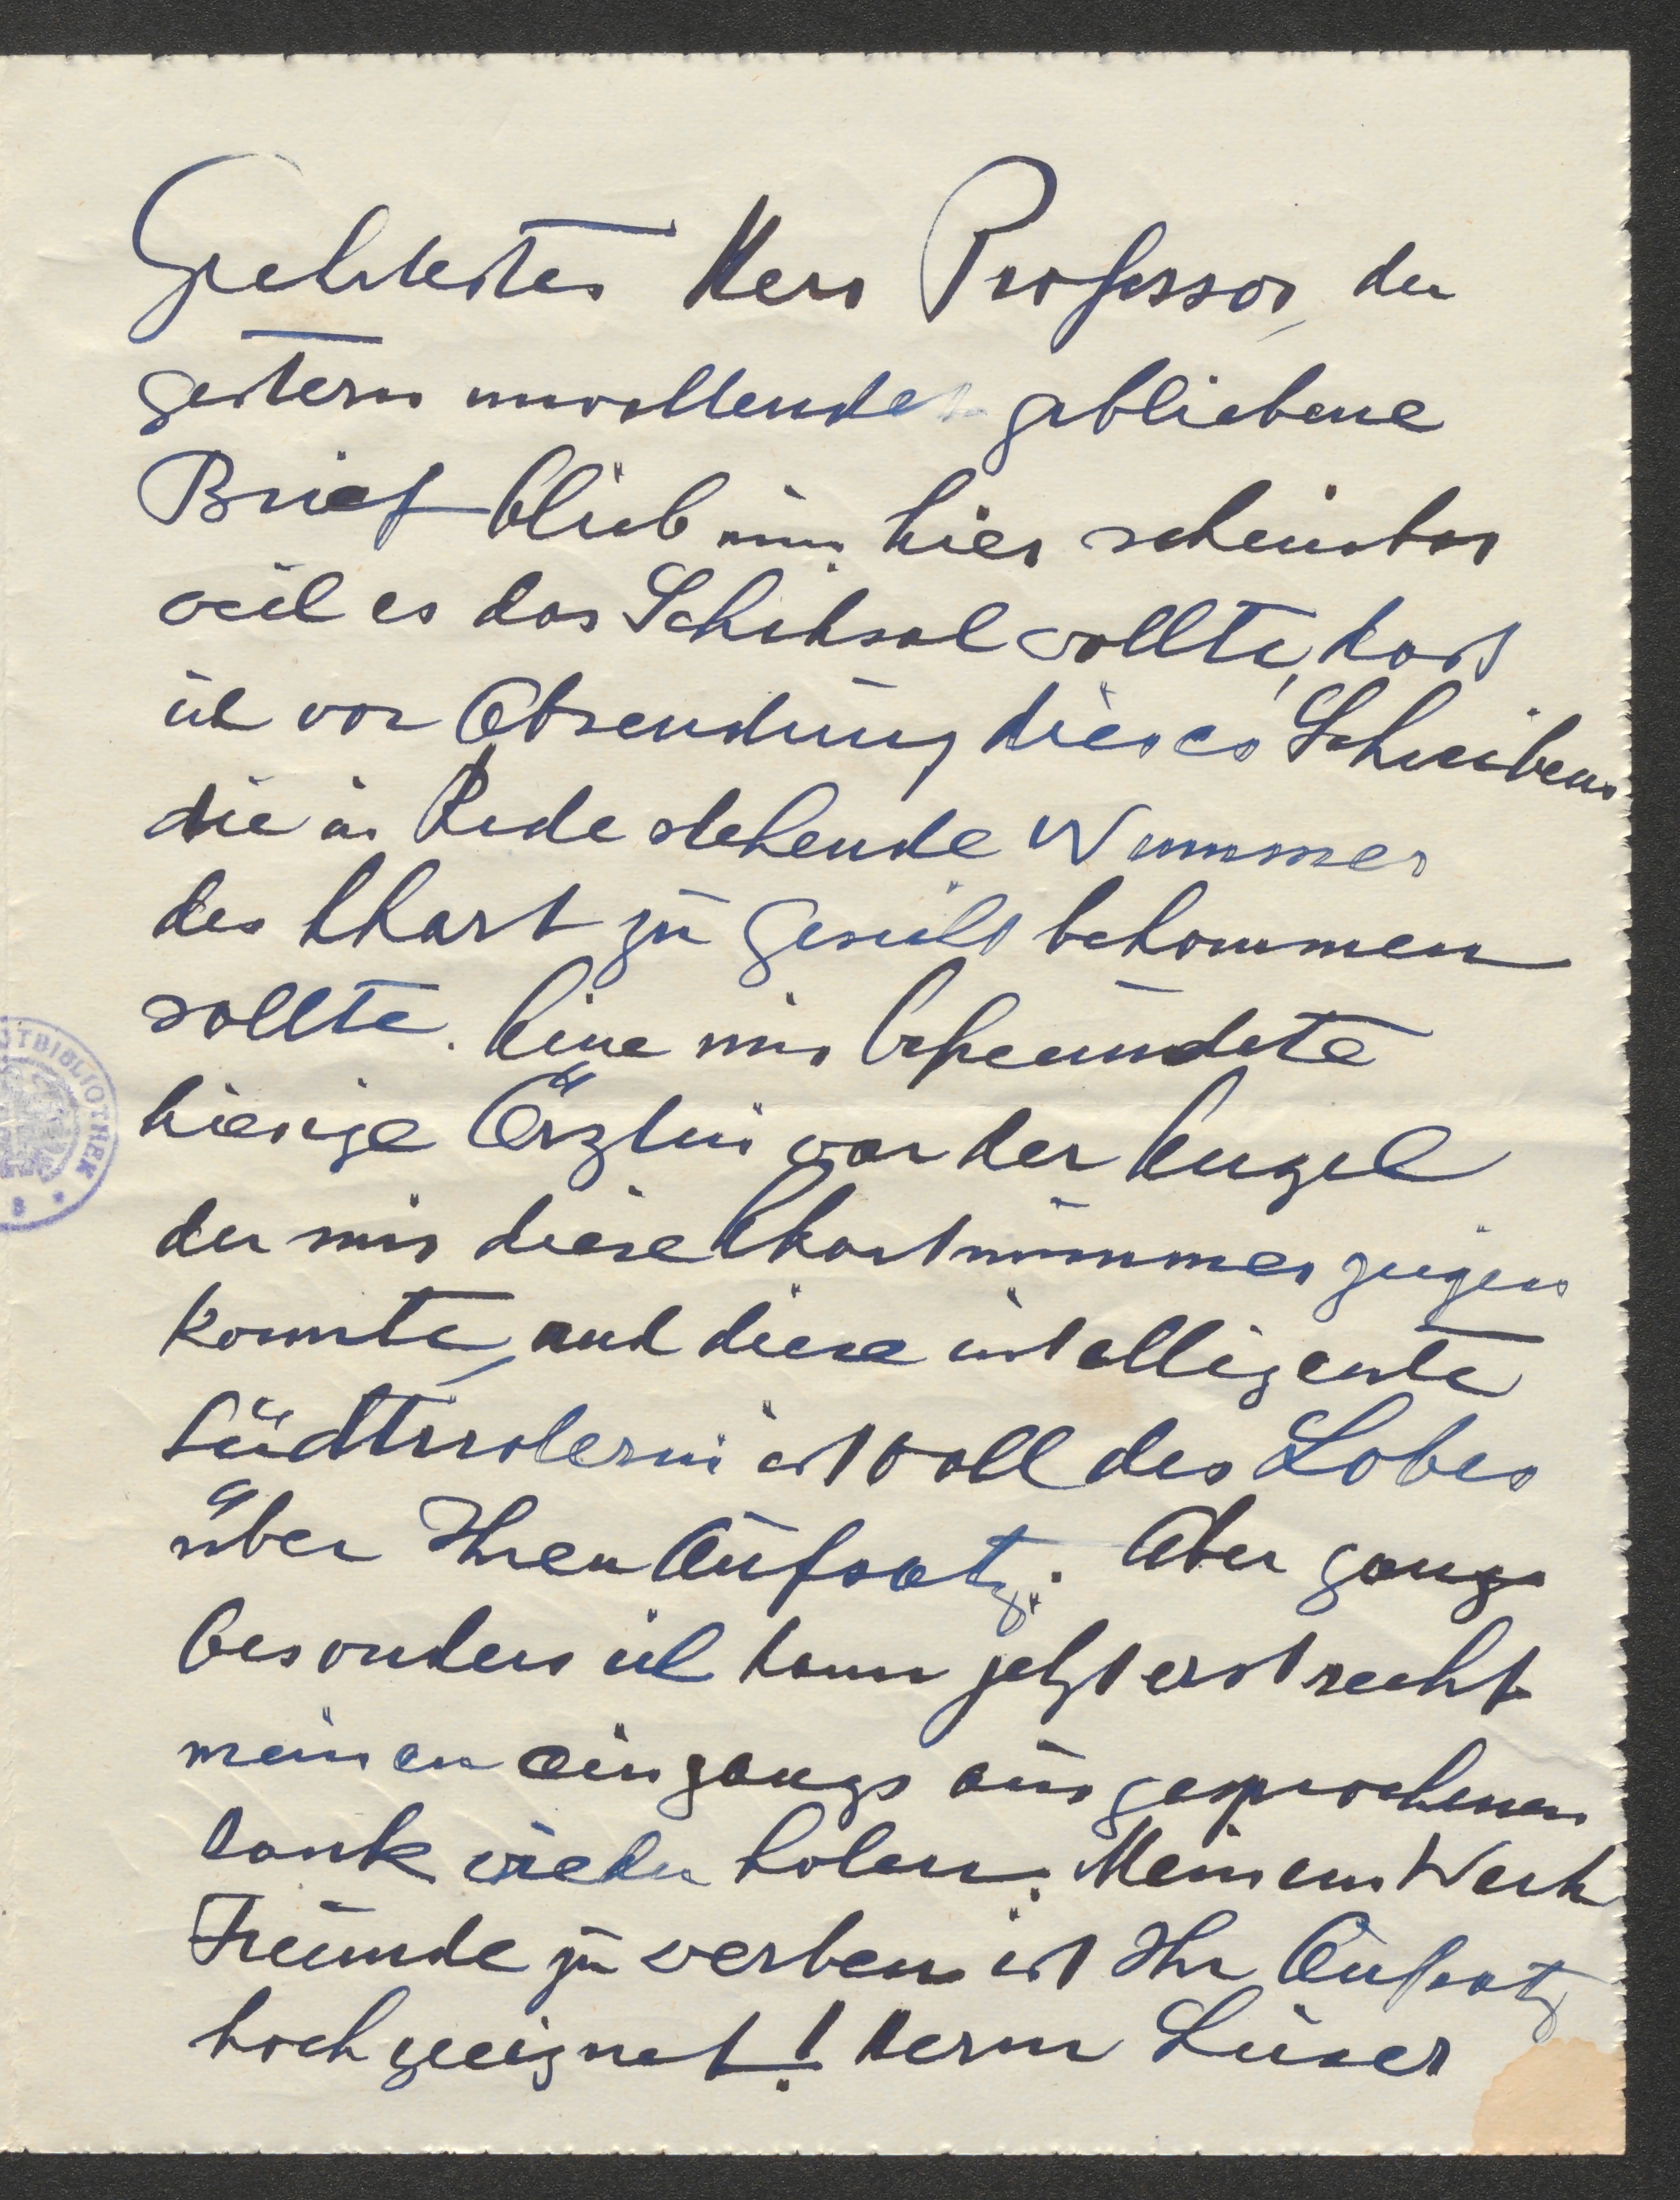 Geehrtester Herr Professor, der
gestern unvollendet gebliebene
Brief blieb nun hier scheinbar
weil es das Schiksal wollte, dass
ich vor Absendung dieses Schreibens
die in Rede stehende Nummer
des Ekart zu Gesicht bekommen
sollte. Eine mir befreundete
hiesige Ärztin war der Engel
der mir diese Ekartnummer zeigen
konnte, und diese intelligente
Südtirolerin ist voll des Lobes
über Ihren Aufsatz. Aber ganz
besonders ich kann jetzt erst recht
meinen eingangs ausgesprochenen
Dank wieder holen. Meinem Werk
Freunde zu werben ist Ihr Aufsatz
hoch geeignet! Herrn
STBIBLIOTHEK